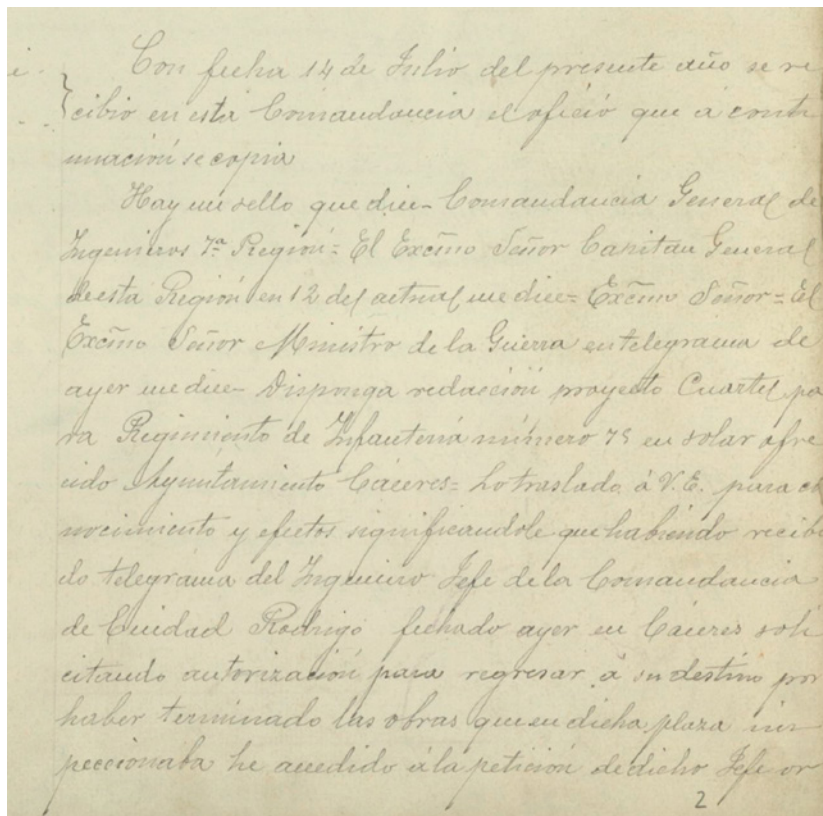 Con fecha 14 de Julio del presente año se re
cibio en esta Comandancia el oficio que á conti
nuación se copia
Hay un sello que dice- Comandancia General de
Ingenieros 7ª Región= El Excmo Señor Capitan General
de esta Región en 12 del actual me dice= Excmo Señor= El
Excmo Señor Ministro de la Guerra en telegrama de
ayer me dice- Disponga redacción proyecto Cuartel pa
ra Regimiento de Infanteria número 75 en solar ofre
cido Ayuntamiento Cáceres= Lo traslado á V.E. para co
nocimiento y efectos significandole que habiendo recibi
do telegrama del Ingeniero Jefe de la Comandancia
de Ciudad Rodrigo fechado ayer en Cáceres soli
citando autorización para regresar á su destino por
haber terminado las obras que en dicha plaza ins
peccionaba he accedido á la petición de dicho Jefe or
2